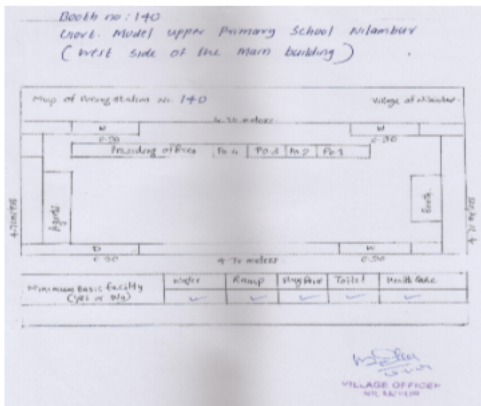 Booth no: 140
Govt. Model upper Primary School Nilambur
( West side of the Main building )
Map of Polling station no. 140
Village of Nilambur
4.70 meters
W
W
0.90
0.90
Presiding officer
Po 4
Po 3
Po 2
Po 1
Agents
Booth
D
W
0.90
4.70 meters
0.90
Minimum Basic facility
(Yes or No)
Water
Ramp
Toilet
✓
✓
✓
✓
✓
VILLAGE OFFICER
NILAMBUR